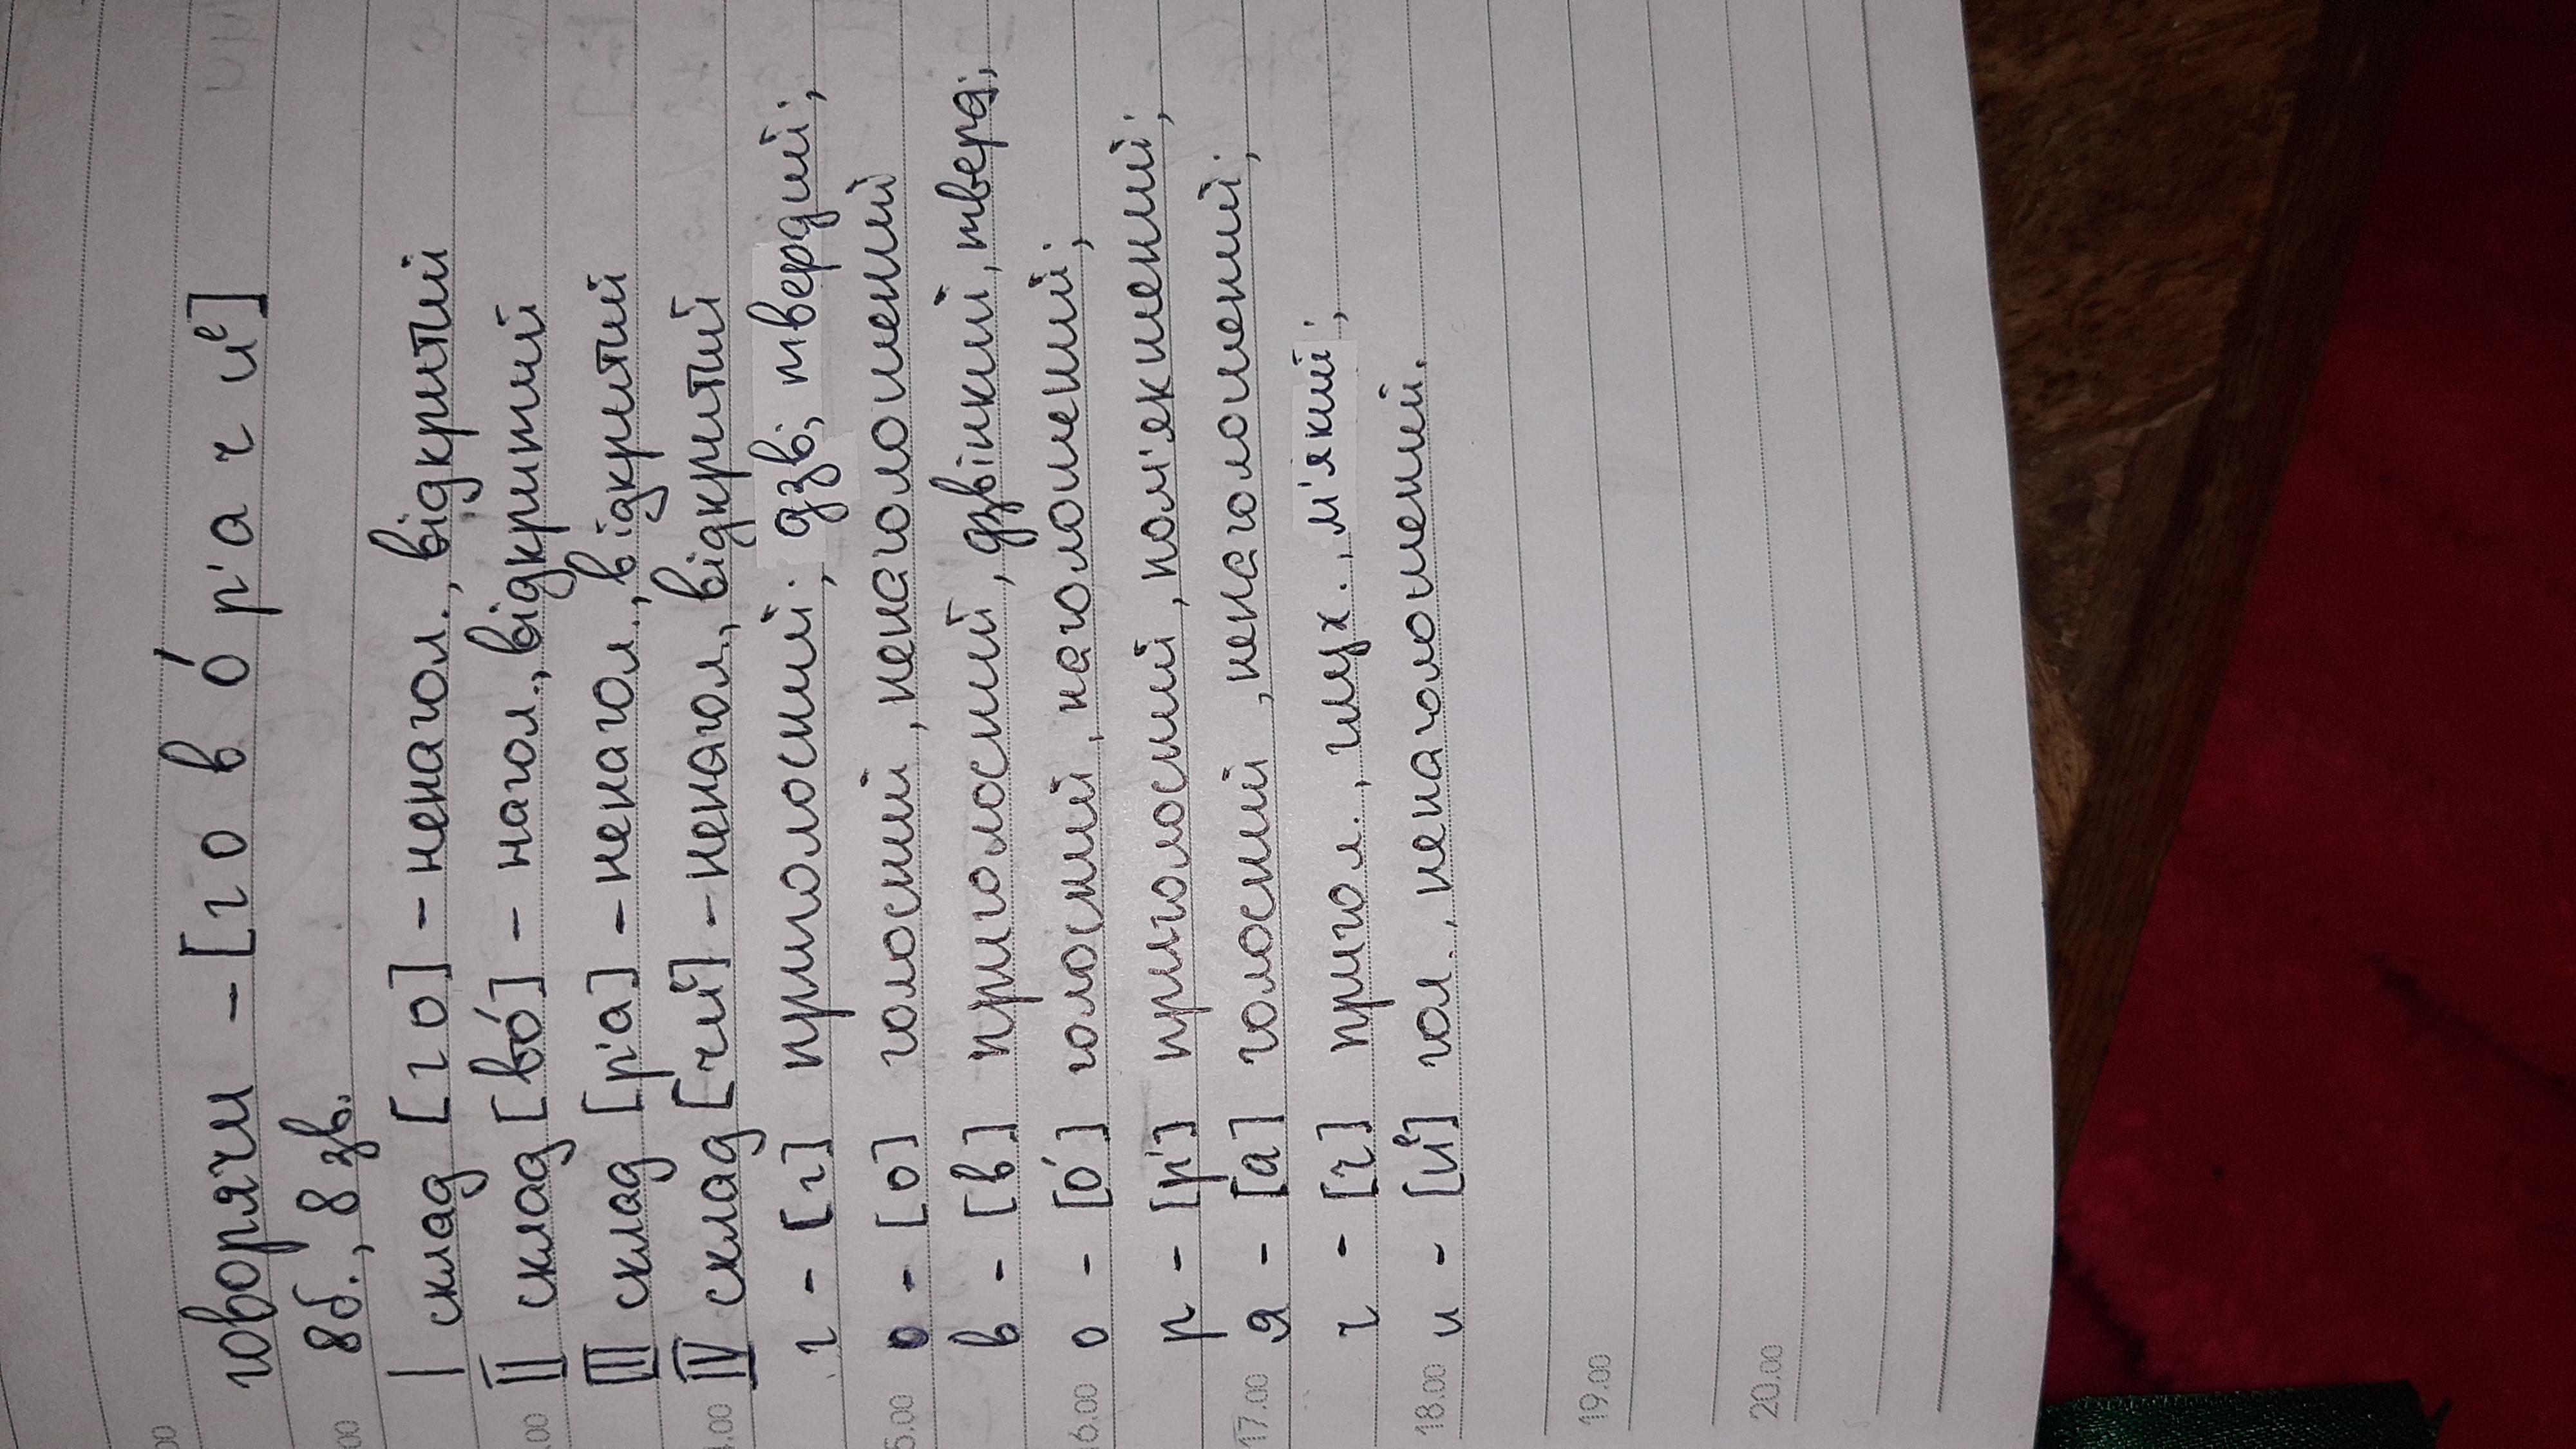 говорячи - [г о в о́ р' а ч иᵉ]
8б., 8 зв.
I склад [г о] - ненагол., відкритий
II склад [во́] - нагол., відкритий
III склад [р'а] - ненагол., відкритий
IV склад [чиᵉ] - ненагол., відкритий
г - [г] приголосний; дзв; твердий;
15.00 о - [о] голосний, ненаголошений
в - [в] приголосний, дзвінкий, тверд;
16.00 о - [о́] голосний, наголошений;
р - [р'] приголосний, пом'якшений;
17.00 я - [а] голосний, ненаголошений;
ч - [ч] пригол., шух., м'який;
18.00 и - [иᵉ] гол., ненаголошений.
19.00
20.00